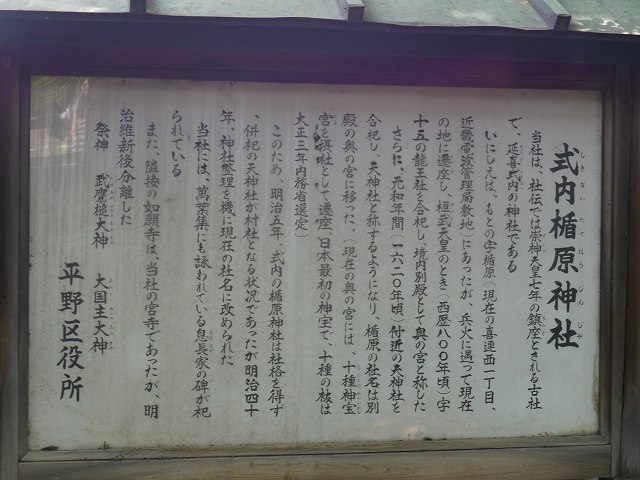 式内楯原神社
しきないたてはらじんじゃ
当社は、社伝では崇神天皇七年の鎮座とされる古社
で、延喜式内の神社である
いにしえは、もとの字楯原(現在の喜連西一丁目、
近畿電波管理局敷地)にあったが、兵火に遇って現在
の地に遷座し、桓武天皇のとき(西歴八〇〇年頃)字
十五の龍王社を合祀し、境内別殿として奥の宮と称した
さらに、元和年間(一六二〇年頃)付近の天神社を
合祀し、天神社と称するようになり、楯原の社名は別
殿の奥の宮に移った。(現在の奥の宮には、十種神宝
宮を摂社として遷座、日本最初の神宝で、十種の祓は
大正三年内務省選定)
このため、明治五年、式内の楯原神社は社格を得ず
、併祀の天神社が村社となる状況であったが明治四十
年、神社整理を機に現在の社名に改められた
当社には、萬葉集にも詠われている息長家の碑が祀
られている
また、隣接の如願寺は、当社の宮寺であったが、明
治維新後分離した
祭神 武甕槌大神 大国主大神
平野区役所